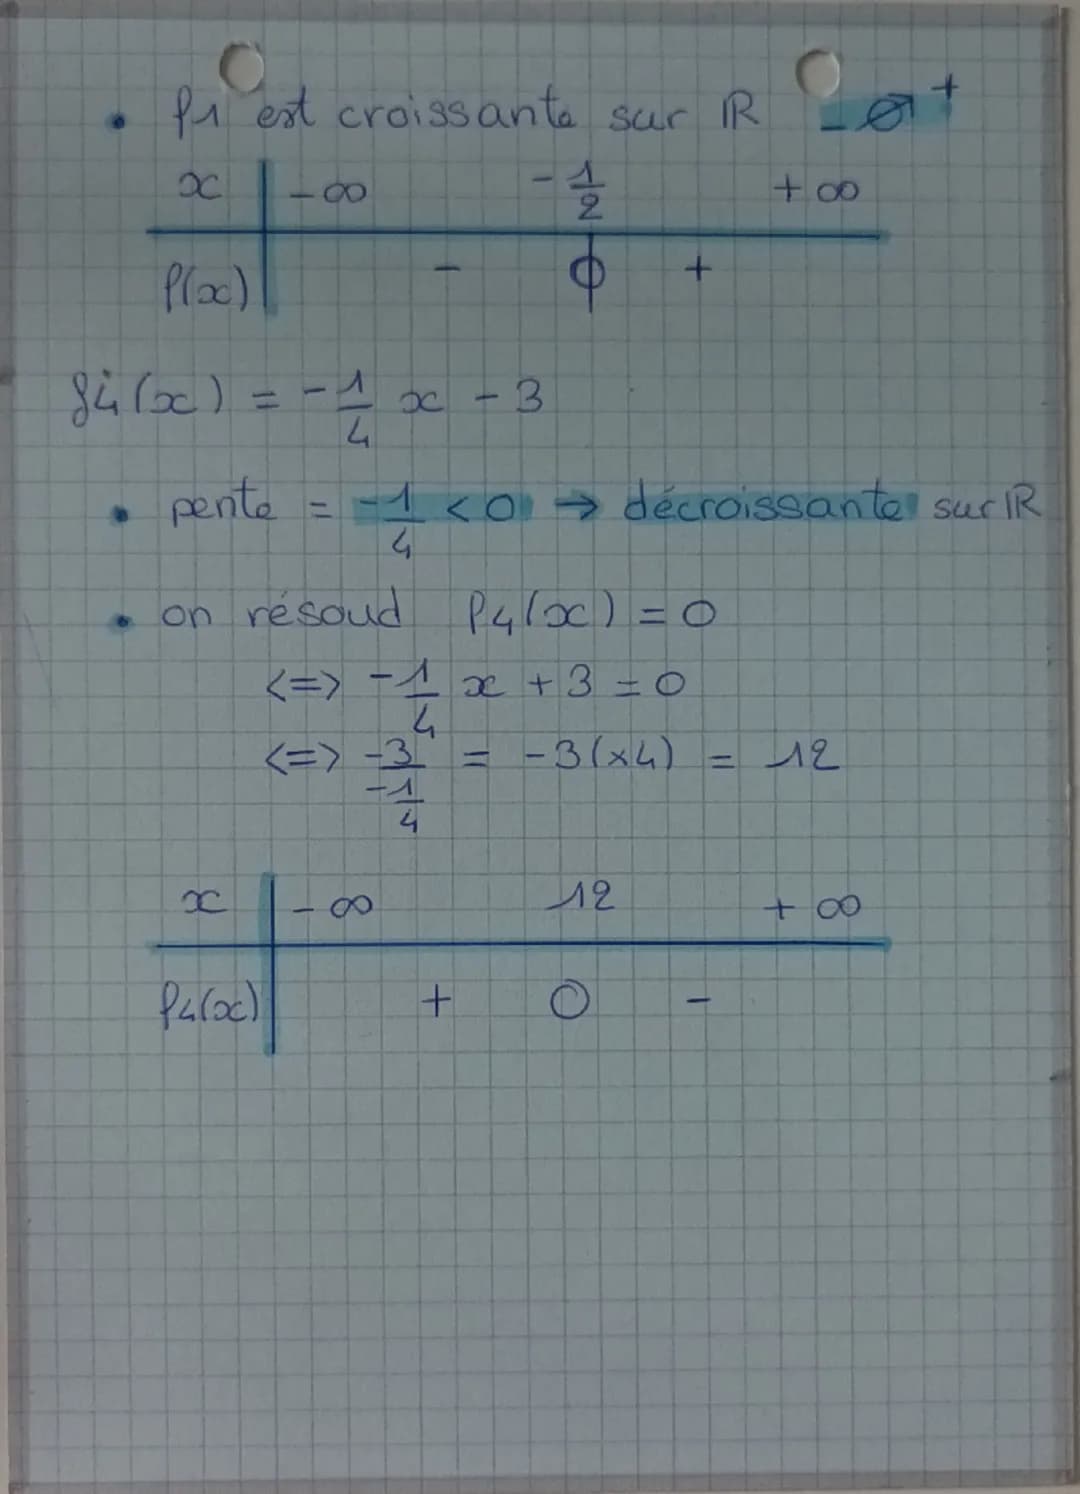 • f1 est croissante sur ℝ - 0 ↗ +
x | -∞ -1/2 +∞
f(x) | - 0 +
f4(x) = -1/4 x - 3
• pente = -1/4 < 0 → décroissante sur ℝ
• on résoud f4(x) = 0
<=> -1/4 x + 3 = 0
<=> -3/(-1/4) = -3(×4) = 12
x | -∞ 12 +∞
f4(x) | + 0 -